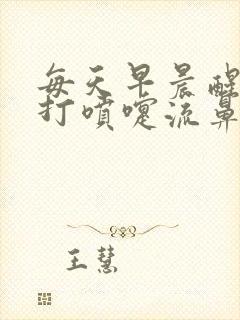 每天早晨醒
打喷嚏流鼻
王慧